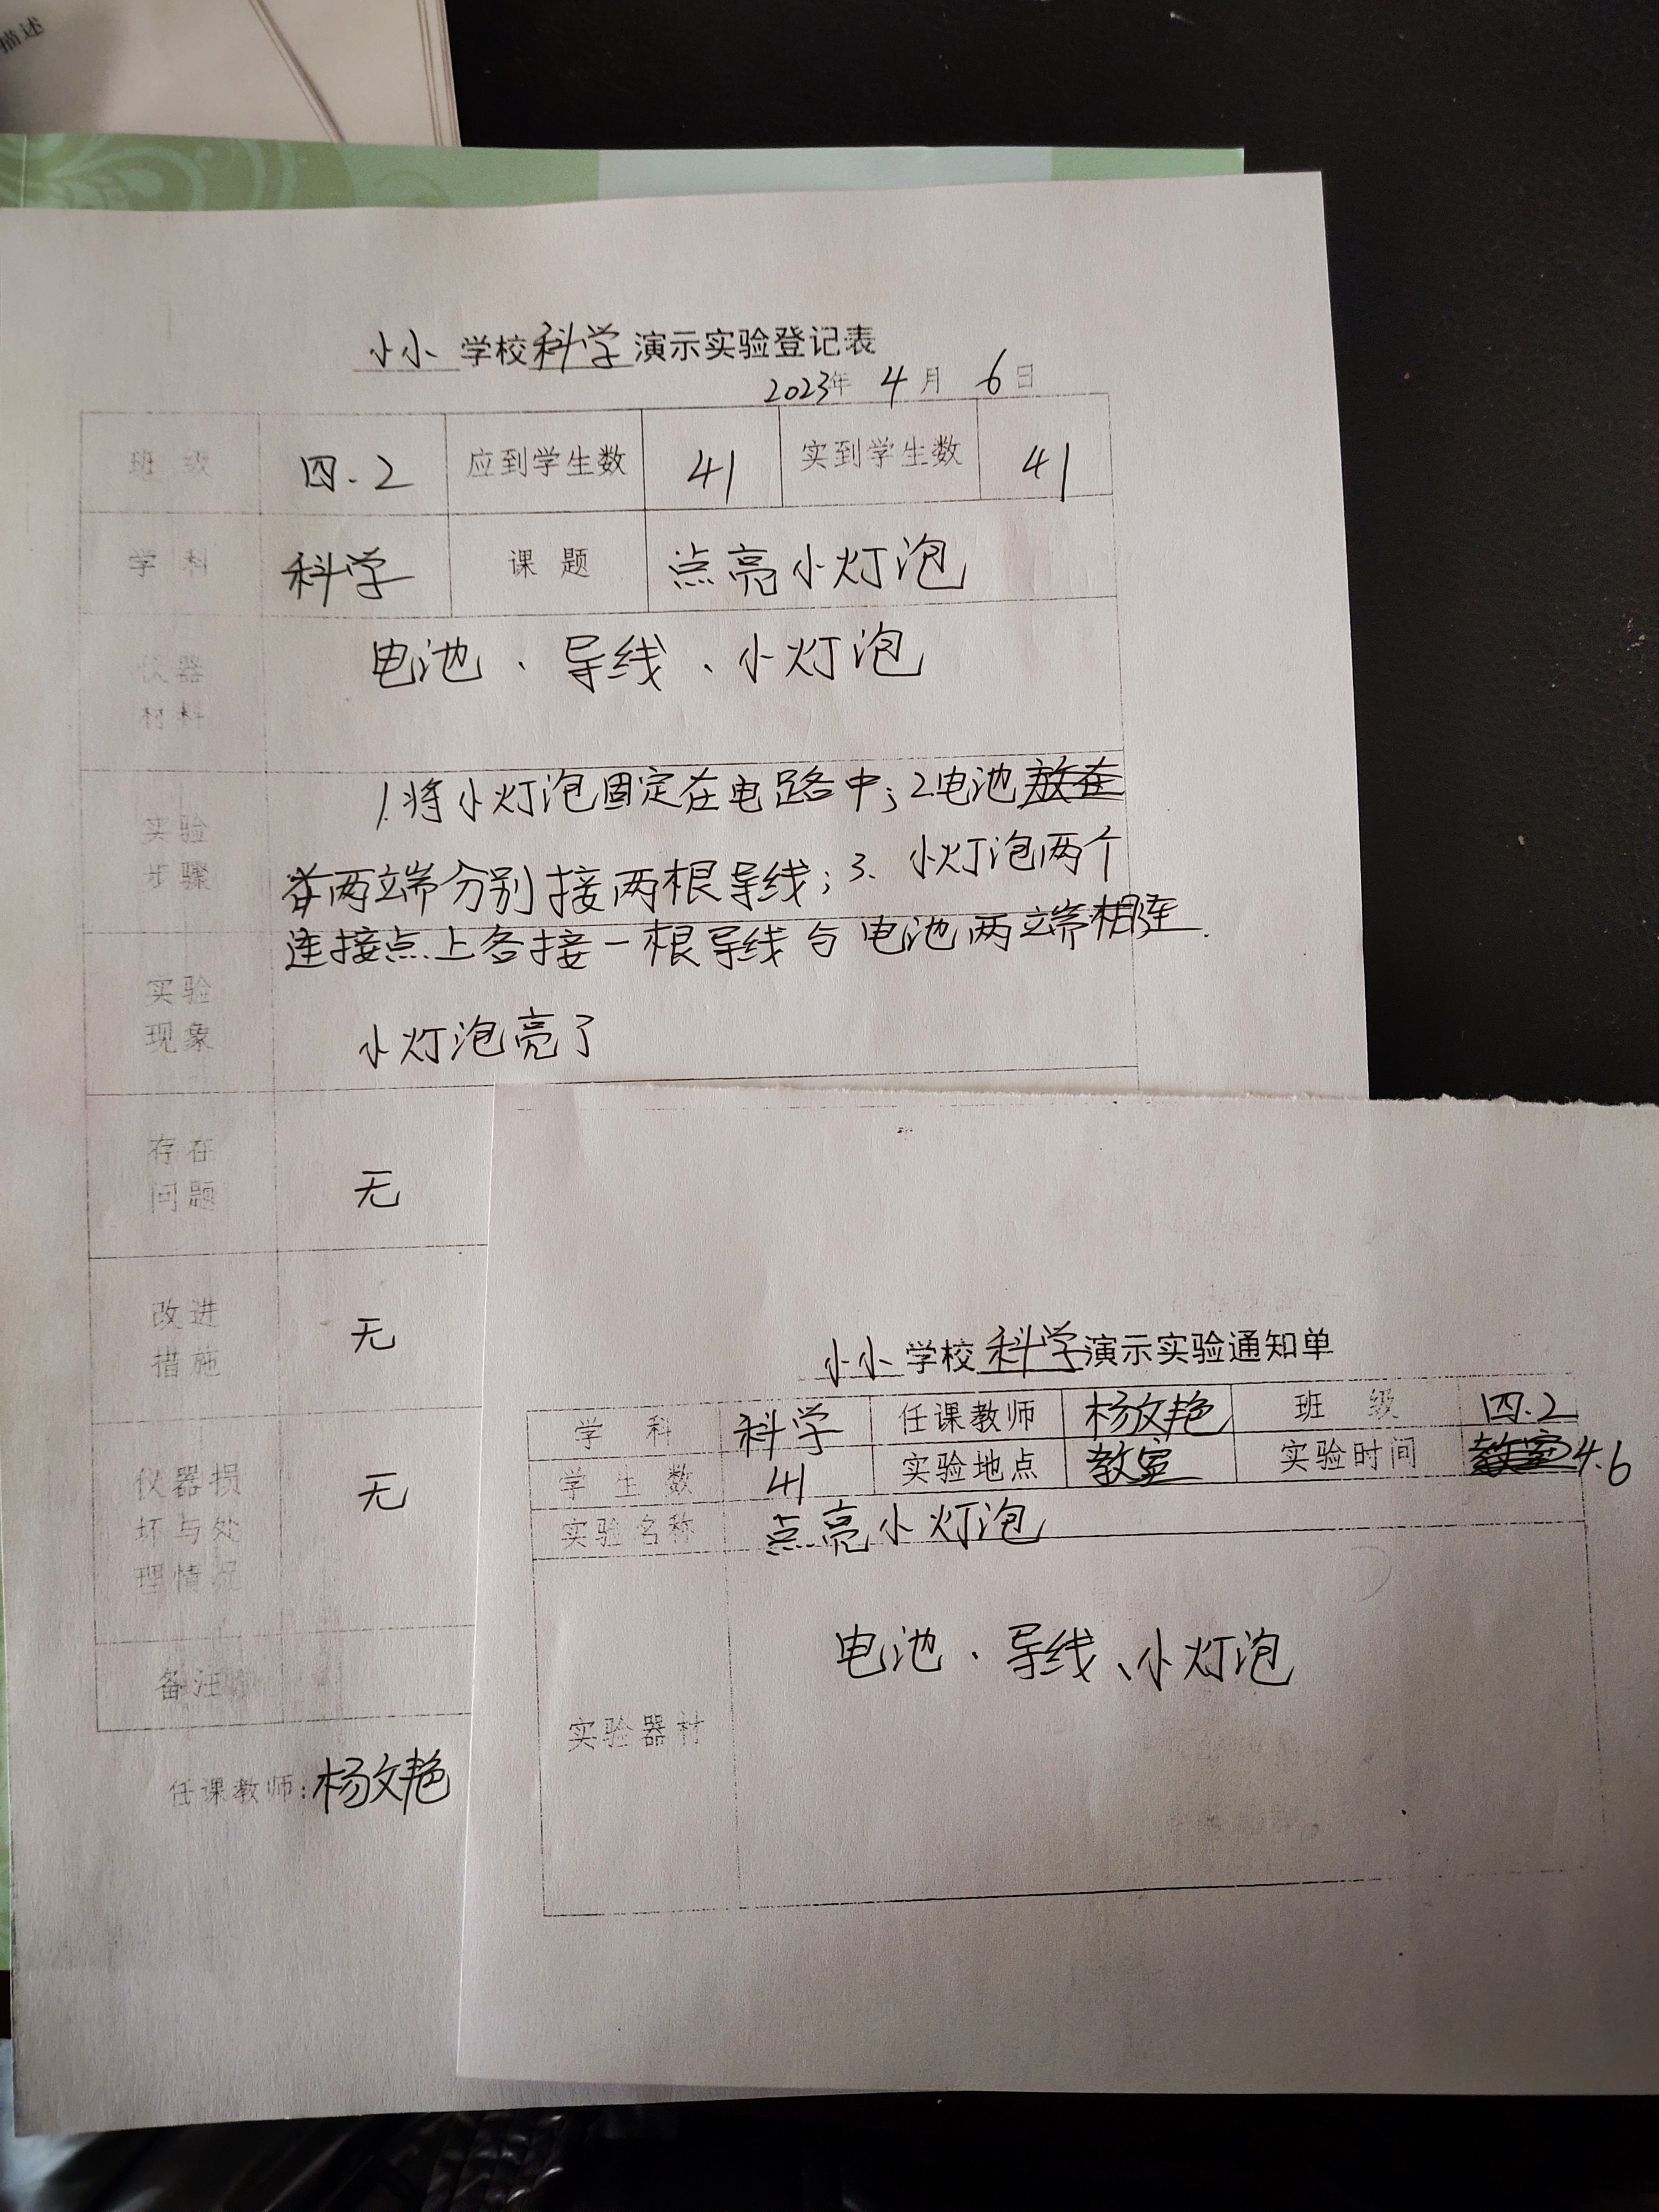 描述
小小学校科学演示实验登记表
2023年 4月 6日
班级 四.2 应到学生数 41 实到学生数 41
学科 科学 课题 点亮小灯泡
仪器材料 电池、导线、小灯泡
实验步骤 1.将小灯泡固定在电路中;2电池放在
两端分别接两根导线;3、小灯泡两个
连接点上各接一根导线与电池两端相连.
实验现象 小灯泡亮了
存在问题 无
改进措施 无
仪器损坏与处理情况 无
备注
任课教师:杨文艳
小小学校科学演示实验通知单
学科 科学 任课教师 杨文艳 班级 四.2
学生数 41 实验地点 教室 实验时间 教室4.6
实验名称 点亮小灯泡
实验器材 电池、导线、小灯泡